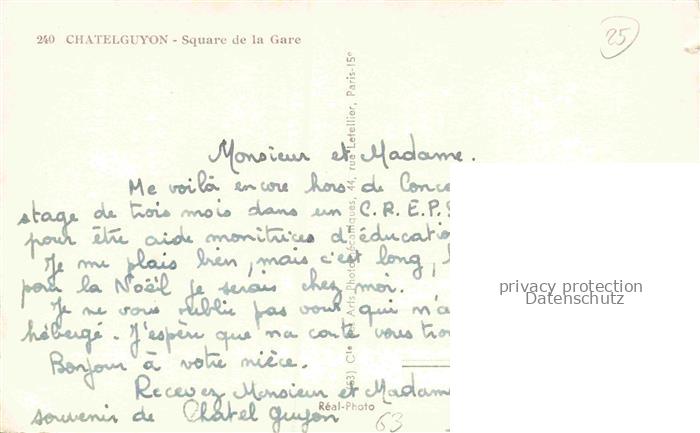 240 CHATELGUYON - Square de la Gare
25
Monsieur et Madame.
Me voilà encore hors de Conce
stage de trois mois dans un C.R.E.P.S
pour être aide monitrices d'éducatio
Je me plais bien, mais c'est long,
pour la Noël je serais chez moi.
Je ne vous oublie pas vous qui n'a
hébergé. J'espère que ma carte vous tro
Bonjour à votre nièce.
Recevez Monsieur et Madame
souvenir de Chatel Guyon
Réal-Photo
63
(63) Cie des Arts Photomécaniques, 44, rue Letellier, Paris-15e
privacy protection
Datenschutz